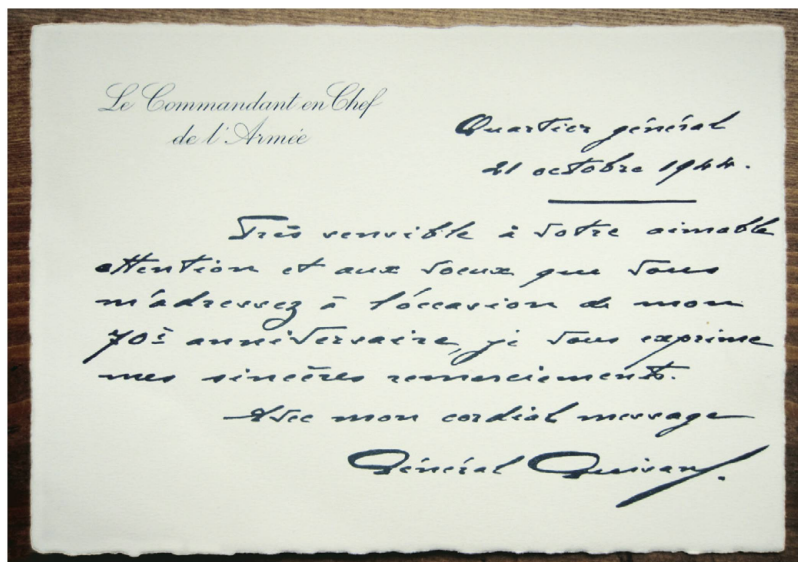 Le Commandant en Chef
de l'Armée
Quartier général
21 octobre 1944.
Très sensible à votre aimable
attention et aux voeux que vous
m'adressez à l'occasion de mon
70e anniversaire, je vous exprime
mes sincères remerciements.
Avec mon cordial message
Général Guisan.